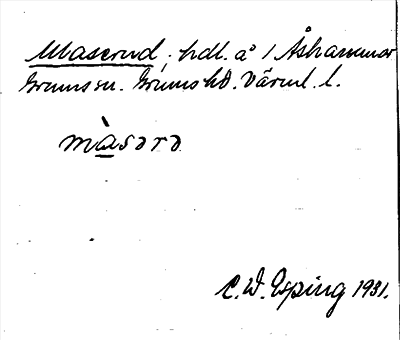 Maserud, hdl. å 1 Åshammar
Grums sn. Grums hd. Värml. l.
màsərə
C.W. Esping 1931.